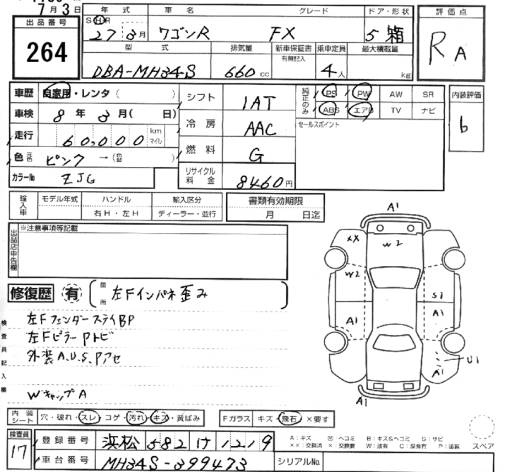 7月3日
出品番号
264
年式 車名 グレード ドア・形状
27 3月 ワゴンR FX 5 箱
型式 排気量 新車保証書 乗車定員 最大積載量
有無記入
DBA-MH34S 660cc 4人 kg
評価点
RA
車歴 自家用・レンタ( )
車検 8年3月( 日)
走行 60,000 km マイル
色 ピンク →(色替 )
カラーNo ZJG
シフト 1AT
冷房 AAC
燃料 G
リサイクル料金 8460円
純正のみ
PS PW AW SR
ABS エアB TV ナビ
セールスポイント
内装評価
b
輸入車 モデル年式 ハンドル 輸入区分
右H・左H ディーラー・並行
書類有効期限
月 日迄
出品店申告欄
※注意事項等記載
修復歴 有 箇所 左Fインパネ歪み
検査員記入欄
左FフェンダーステイBP
左FピラーPトビ
外装A.U.S.Pアセ
WキャップA
A1
XX
W2
W2
A1
S1
A1
U1
A1
A1
内装シート 穴・破れ・スレ・コゲ・汚れ・キズ・黄ばみ
Fガラス キズ・飛石・×要す
スペア
検査員
17
登録番号 浜松582け1219
車台番号 MH34S-399473
シリアルNo